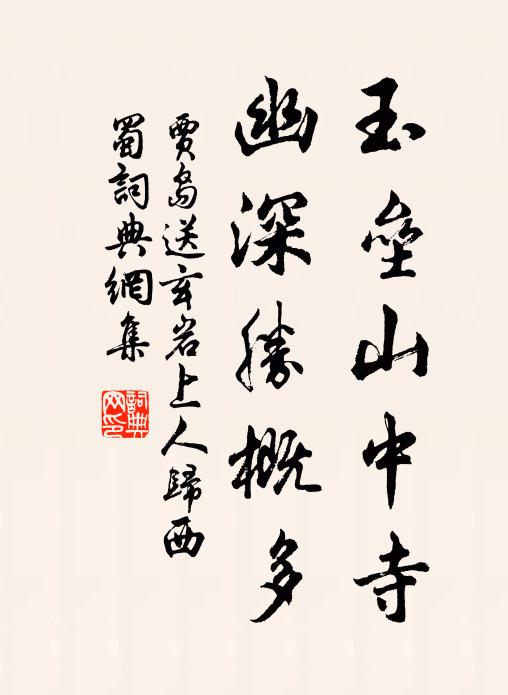 玉壘山中寺
幽深勝概多
賈島送玄岩上人歸西
蜀詞典網集
詞典网印